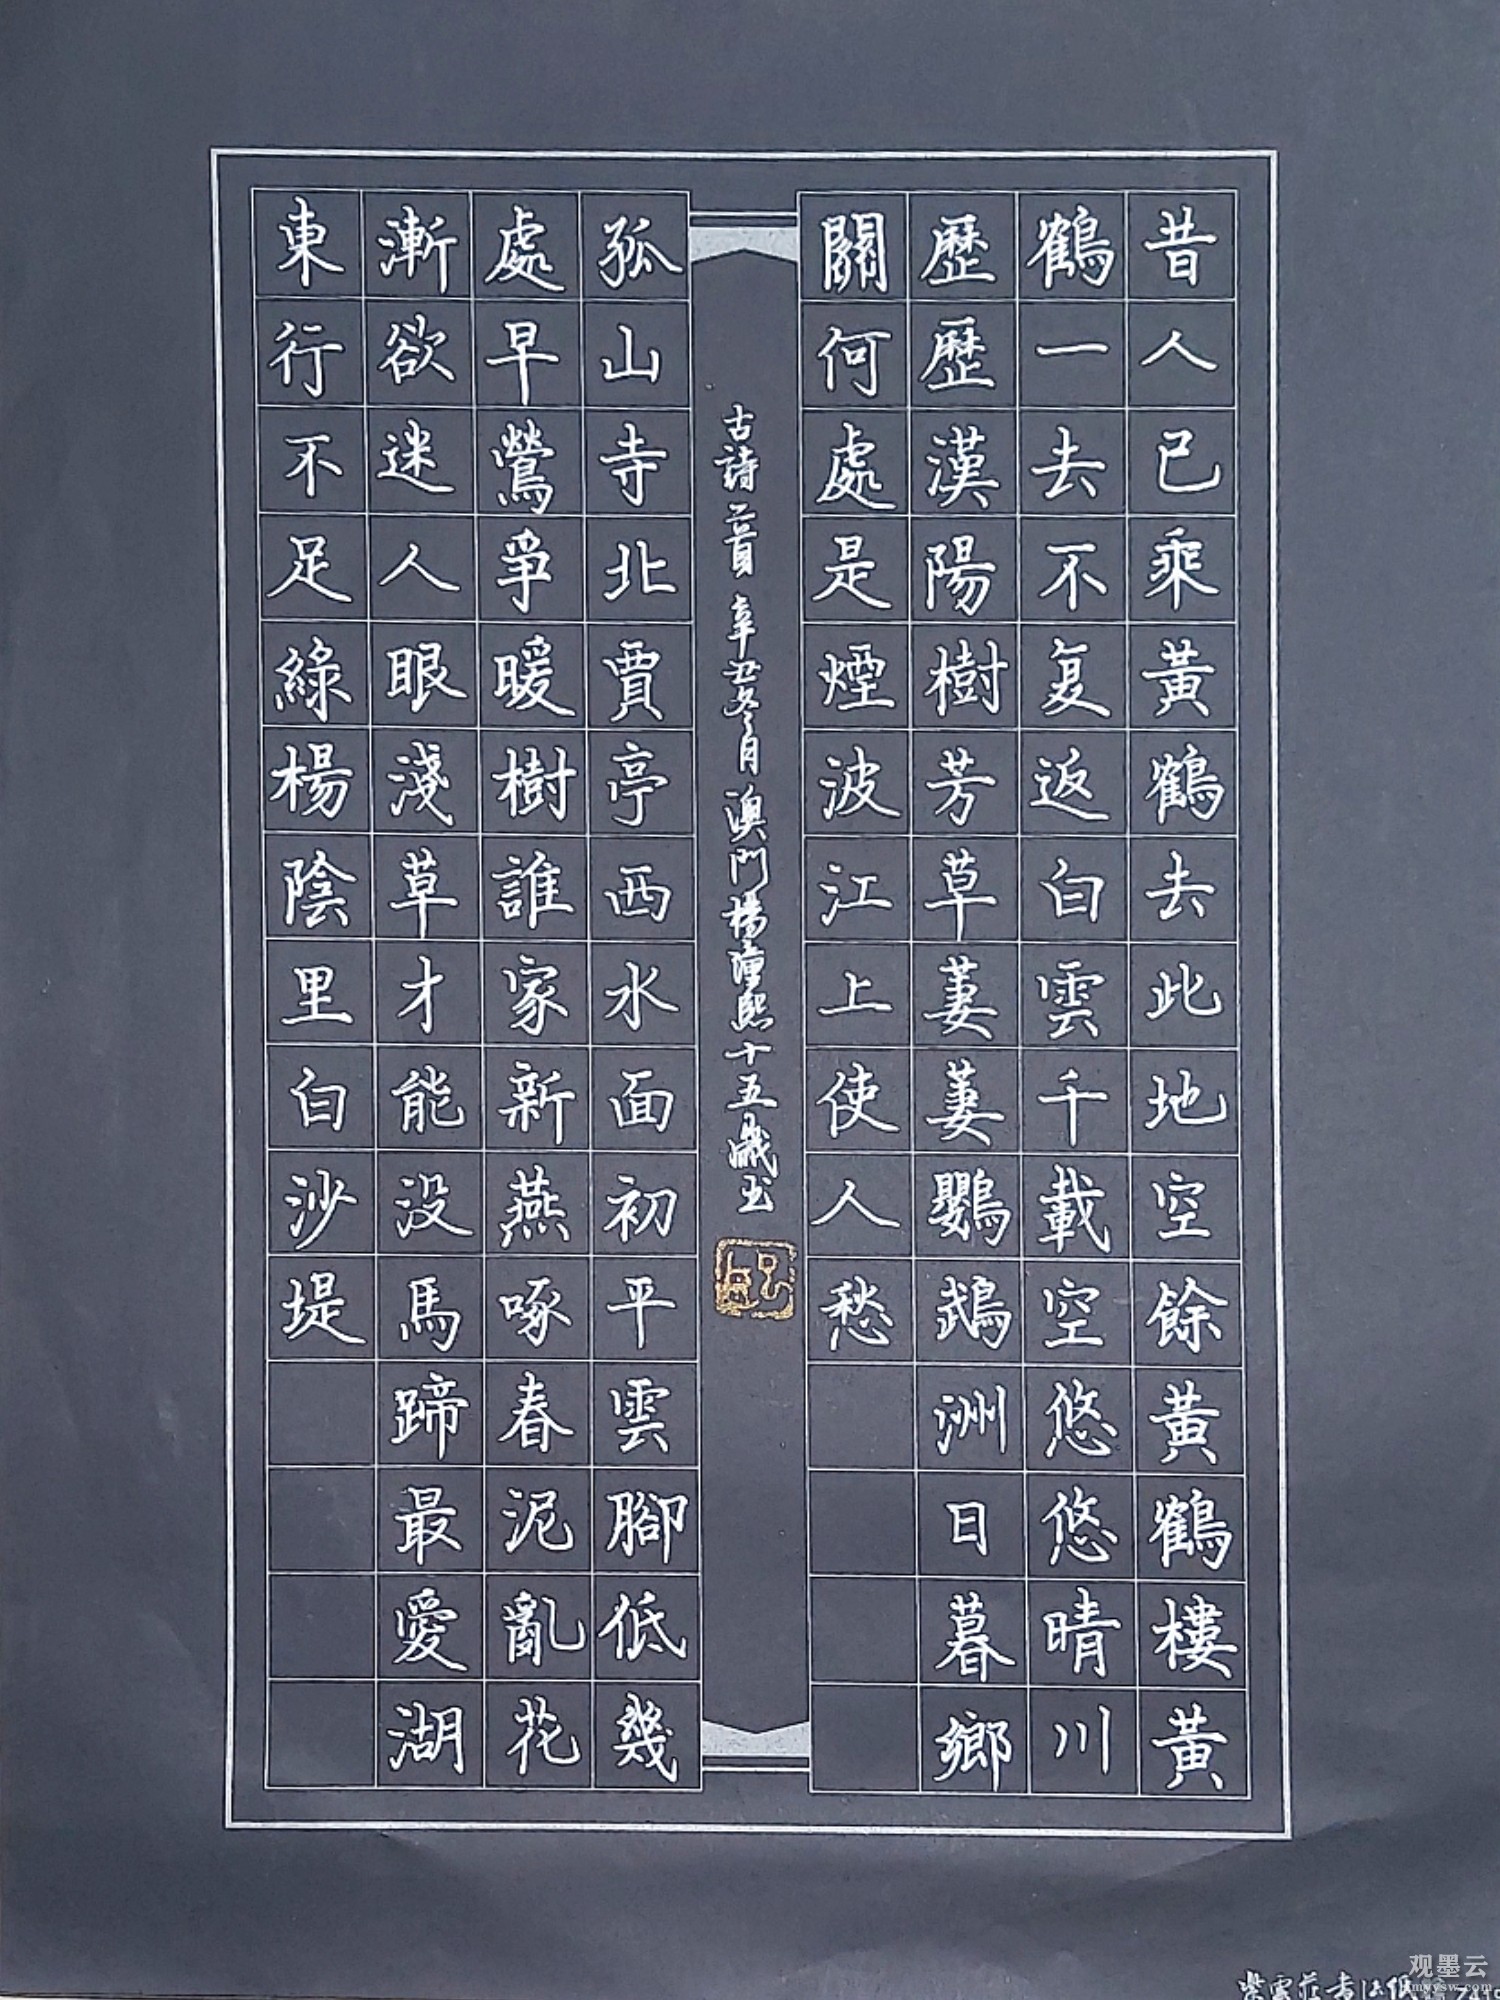 昔人已乘黃鶴去此地空餘黃鶴樓黃
鶴一去不复返白雲千載空悠悠晴川
歷歷漢陽樹芳草萋萋鸚鵡洲日暮鄉
關何處是煙波江上使人愁
古詩二首 辛丑冬月澳門楊潼熙十五歲書
孤山寺北賈亭西水面初平雲腳低幾
處早鶯爭暖樹誰家新燕啄春泥亂花
漸欲迷人眼淺草才能没馬蹄最愛湖
東行不足綠楊陰里白沙堤
紫雲莊書法紙
观墨云